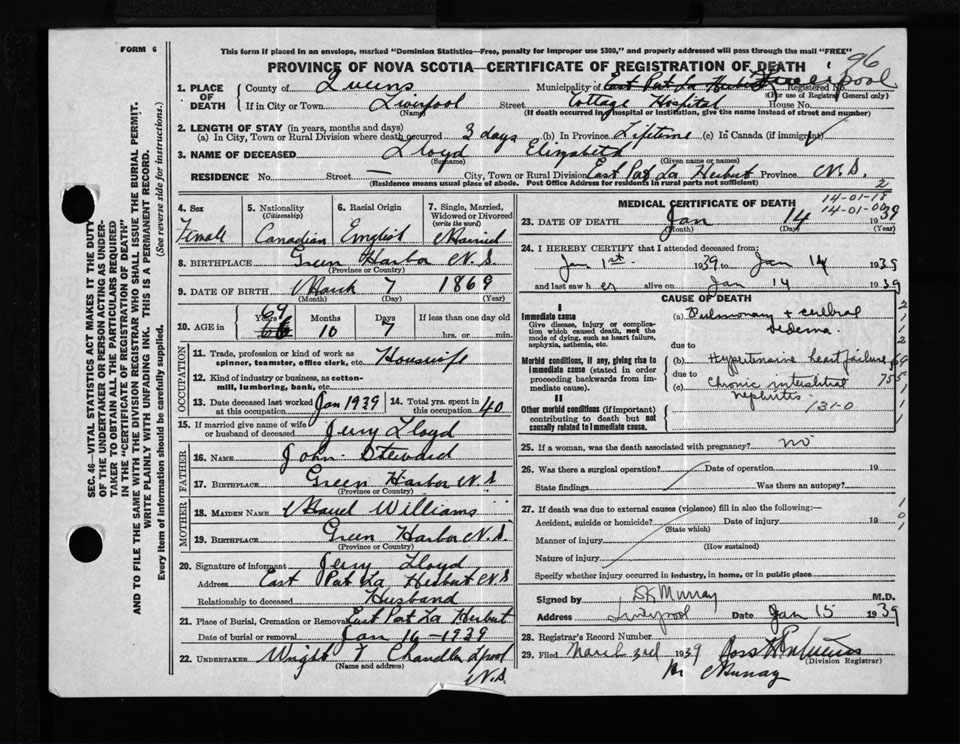 FORM 6
This form if placed in an envelope, marked "Dominion Statistics—Free, penalty for improper use $300," and properly addressed will pass through the mail "FREE"
96
PROVINCE OF NOVA SCOTIA—CERTIFICATE OF REGISTRATION OF DEATH
1. PLACE OF DEATH County of Queens Municipality of East Port La Hebert Liverpool Registered No.
(For use of Registrar General only)
If in City or Town Liverpool Street Cottage Hospital House No.
(Name) (If death occurred in hospital or institution, give the name instead of street and number)
2. LENGTH OF STAY (in years, months and days)
(a) In City, Town or Rural Division where death occurred 3 days (b) In Province Lifetime (c) In Canada (if immigrant)
3. NAME OF DECEASED Lloyd Elizabeth
(Surname) (Given name or names)
RESIDENCE No. Street — City, Town or Rural Division East Port La Hebert Province N.S.
(Residence means usual place of abode. Post Office Address for residents in rural parts not sufficient)
4. Sex Female
5. Nationality (Citizenship) Canadian
6. Racial Origin English
7. Single, Married, Widowed or Divorced (write the word) Married
8. BIRTHPLACE Green Harbor N.S
(Province or Country)
9. DATE OF BIRTH March 7 1869
(Month) (Day) (Year)
10. AGE in Years 69 66 Months 10 Days 7 If less than one day old
hrs. or min.
OCCUPATION
11. Trade, profession or kind of work as spinner, teamster, office clerk, etc. Housewife
12. Kind of industry or business, as cotton-mill, lumbering, bank, etc.
13. Date deceased last worked at this occupation Jan 1939 14. Total yrs. spent in this occupation 40
15. If married give name of wife or husband of deceased Jerry Lloyd
FATHER
16. NAME John Steward
17. BIRTHPLACE Green Harbor N.S
(Province or Country)
MOTHER
18. MAIDEN NAME Maud Williams
19. BIRTHPLACE Green Harbor N.S.
(Province or Country)
20. Signature of informant Jerry Lloyd
Address East Port La Hebert N.S
Relationship to deceased Husband
21. Place of Burial, Cremation or Removal East Port La Hebert
Date of burial or removal Jan 16—1939
22. UNDERTAKER Wright & Chandler Lpool
(Name and address) N.S.
MEDICAL CERTIFICATE OF DEATH
14-01-1
14-01-0
23. DATE OF DEATH Jan 14 1939
(Month) (Day) (Year)
24. I HEREBY CERTIFY that I attended deceased from:
Jan 1st 1939 to Jan 14 1939
and last saw her alive on Jan 14 1939
CAUSE OF DEATH
I
Immediate cause
Give disease, injury or complication which caused death, not the mode of dying, such as heart failure, asphyxia, asthenia, etc.
(a) Pulmonary + cerebral oedema
due to
Morbid conditions, if any, giving rise to immediate cause (stated in order proceeding backwards from immediate cause).
(b) Hypertensive heart failure
due to
(c) Chronic interstitial nephritis
II
Other morbid conditions (if important) contributing to death but not causally related to immediate cause.
131-0
25. If a woman, was the death associated with pregnancy? no
26. Was there a surgical operation? Date of operation 19
State findings Was there an autopsy?
27. If death was due to external causes (violence) fill in also the following:—
Accident, suicide or homicide? Date of injury 19
(State which)
Manner of injury
(How sustained)
Nature of injury
Specify whether injury occurred in industry, in home, or in public place
Signed by Murray M.D.
Address Liverpool Date Jan 15 1939
28. Registrar's Record Number
29. Filed March 3rd 1939
(Division Registrar)
Murray
SEC. 46—VITAL STATISTICS ACT MAKES IT THE DUTY OF THE UNDERTAKER OR PERSON ACTING AS UNDERTAKER TO OBTAIN ALL THE PARTICULARS REQUIRED IN THE "CERTIFICATE OF REGISTRATION OF DEATH"
AND TO FILE THE SAME WITH THE DIVISION REGISTRAR WHO SHALL ISSUE THE BURIAL PERMIT.
WRITE PLAINLY WITH UNFADING INK. THIS IS A PERMANENT RECORD.
Every item of information should be carefully supplied. (See reverse side for instructions.)